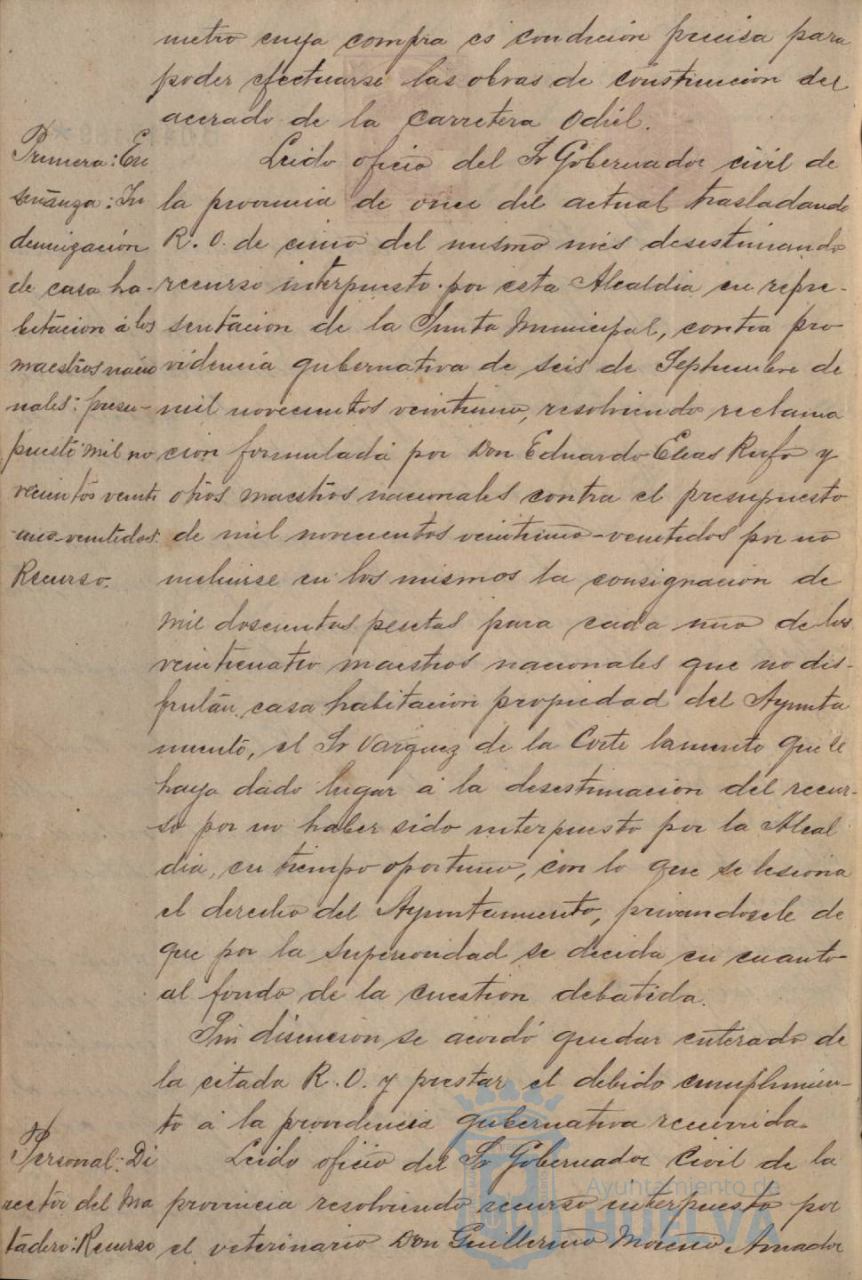 metro cuya compra es condición precisa para
poder efectuarse las obras de construcción del
acerado de la carretera Odiel.
Primera: En
señanza: In
demnización
de casa ha-
bitación á los
maestros nacio
nales: presu-
puesto mil no
vecientos veinti
uno-veintidos.
Recurso.
Leido oficio del Sr Gobernador civil de
la provincia de once del actual trasladando
R. O. de cinco del mismo mes desestimando
recurso interpuesto por esta Alcaldia en repre-
sentacion de la Junta Municipal, contra pro
videncia gubernativa de seis de Septiembre de
mil novecientos veintiuno, resolviendo reclama
cion formulada por Don Eduardo Elias Rufo y
otros maestros nacionales contra el presupuesto
de mil novecientos veintiuno-veintidos por no
incluirse en los mismos la consignacion de
mil doscientas pesetas para cada uno de los
veinticuatro maestros nacionales que no dis-
frutan casa habitacion propiedad del Ayunta
miento, el Sr Vazquez de la Corte lamento que se
haya dado lugar á la desestimacion del recur-
so por no haber sido interpuesto por la Alcal
dia, en tiempo oportuno, con lo que se lesiona
el derecho del Ayuntamiento, privandosele de
que por la Superioridad se decida en cuanto
al fondo de la cuestion debatida.
Sin discucion se acordó quedar enterado de
la citada R. O. y prestar el debido cumplimien-
to á la providencia gubernativa recurrida.
Personal: Di
rector del Ma
tadero: Recurso
Leido oficio del Sr Gobernador Civil de la
provincia resolviendo recurso interpuesto por
el veterinario Don Guillermo Moreno Amador
Ayuntamiento de
HUELVA